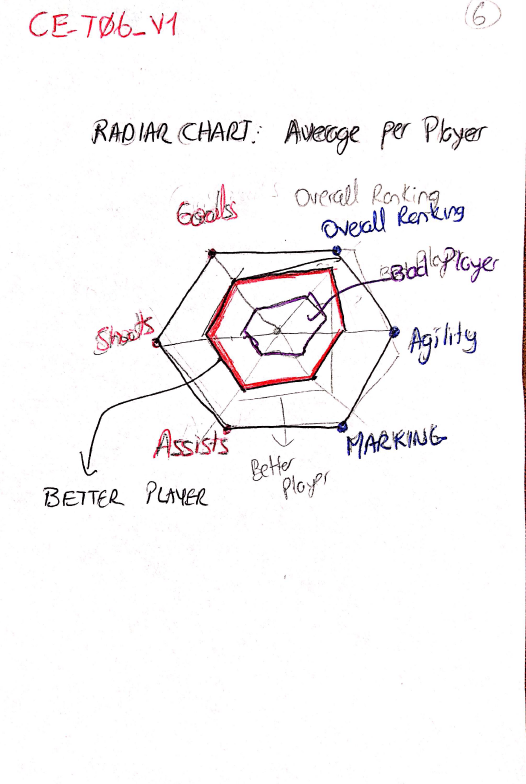 CE-T06_V1
6
RADIAR CHART: Average per Player
Goals
Overall Ranking
Overall Ranking
Bad Player
Shoots
Agility
Assists
MARKING
Better
Player
BETTER PLAYER